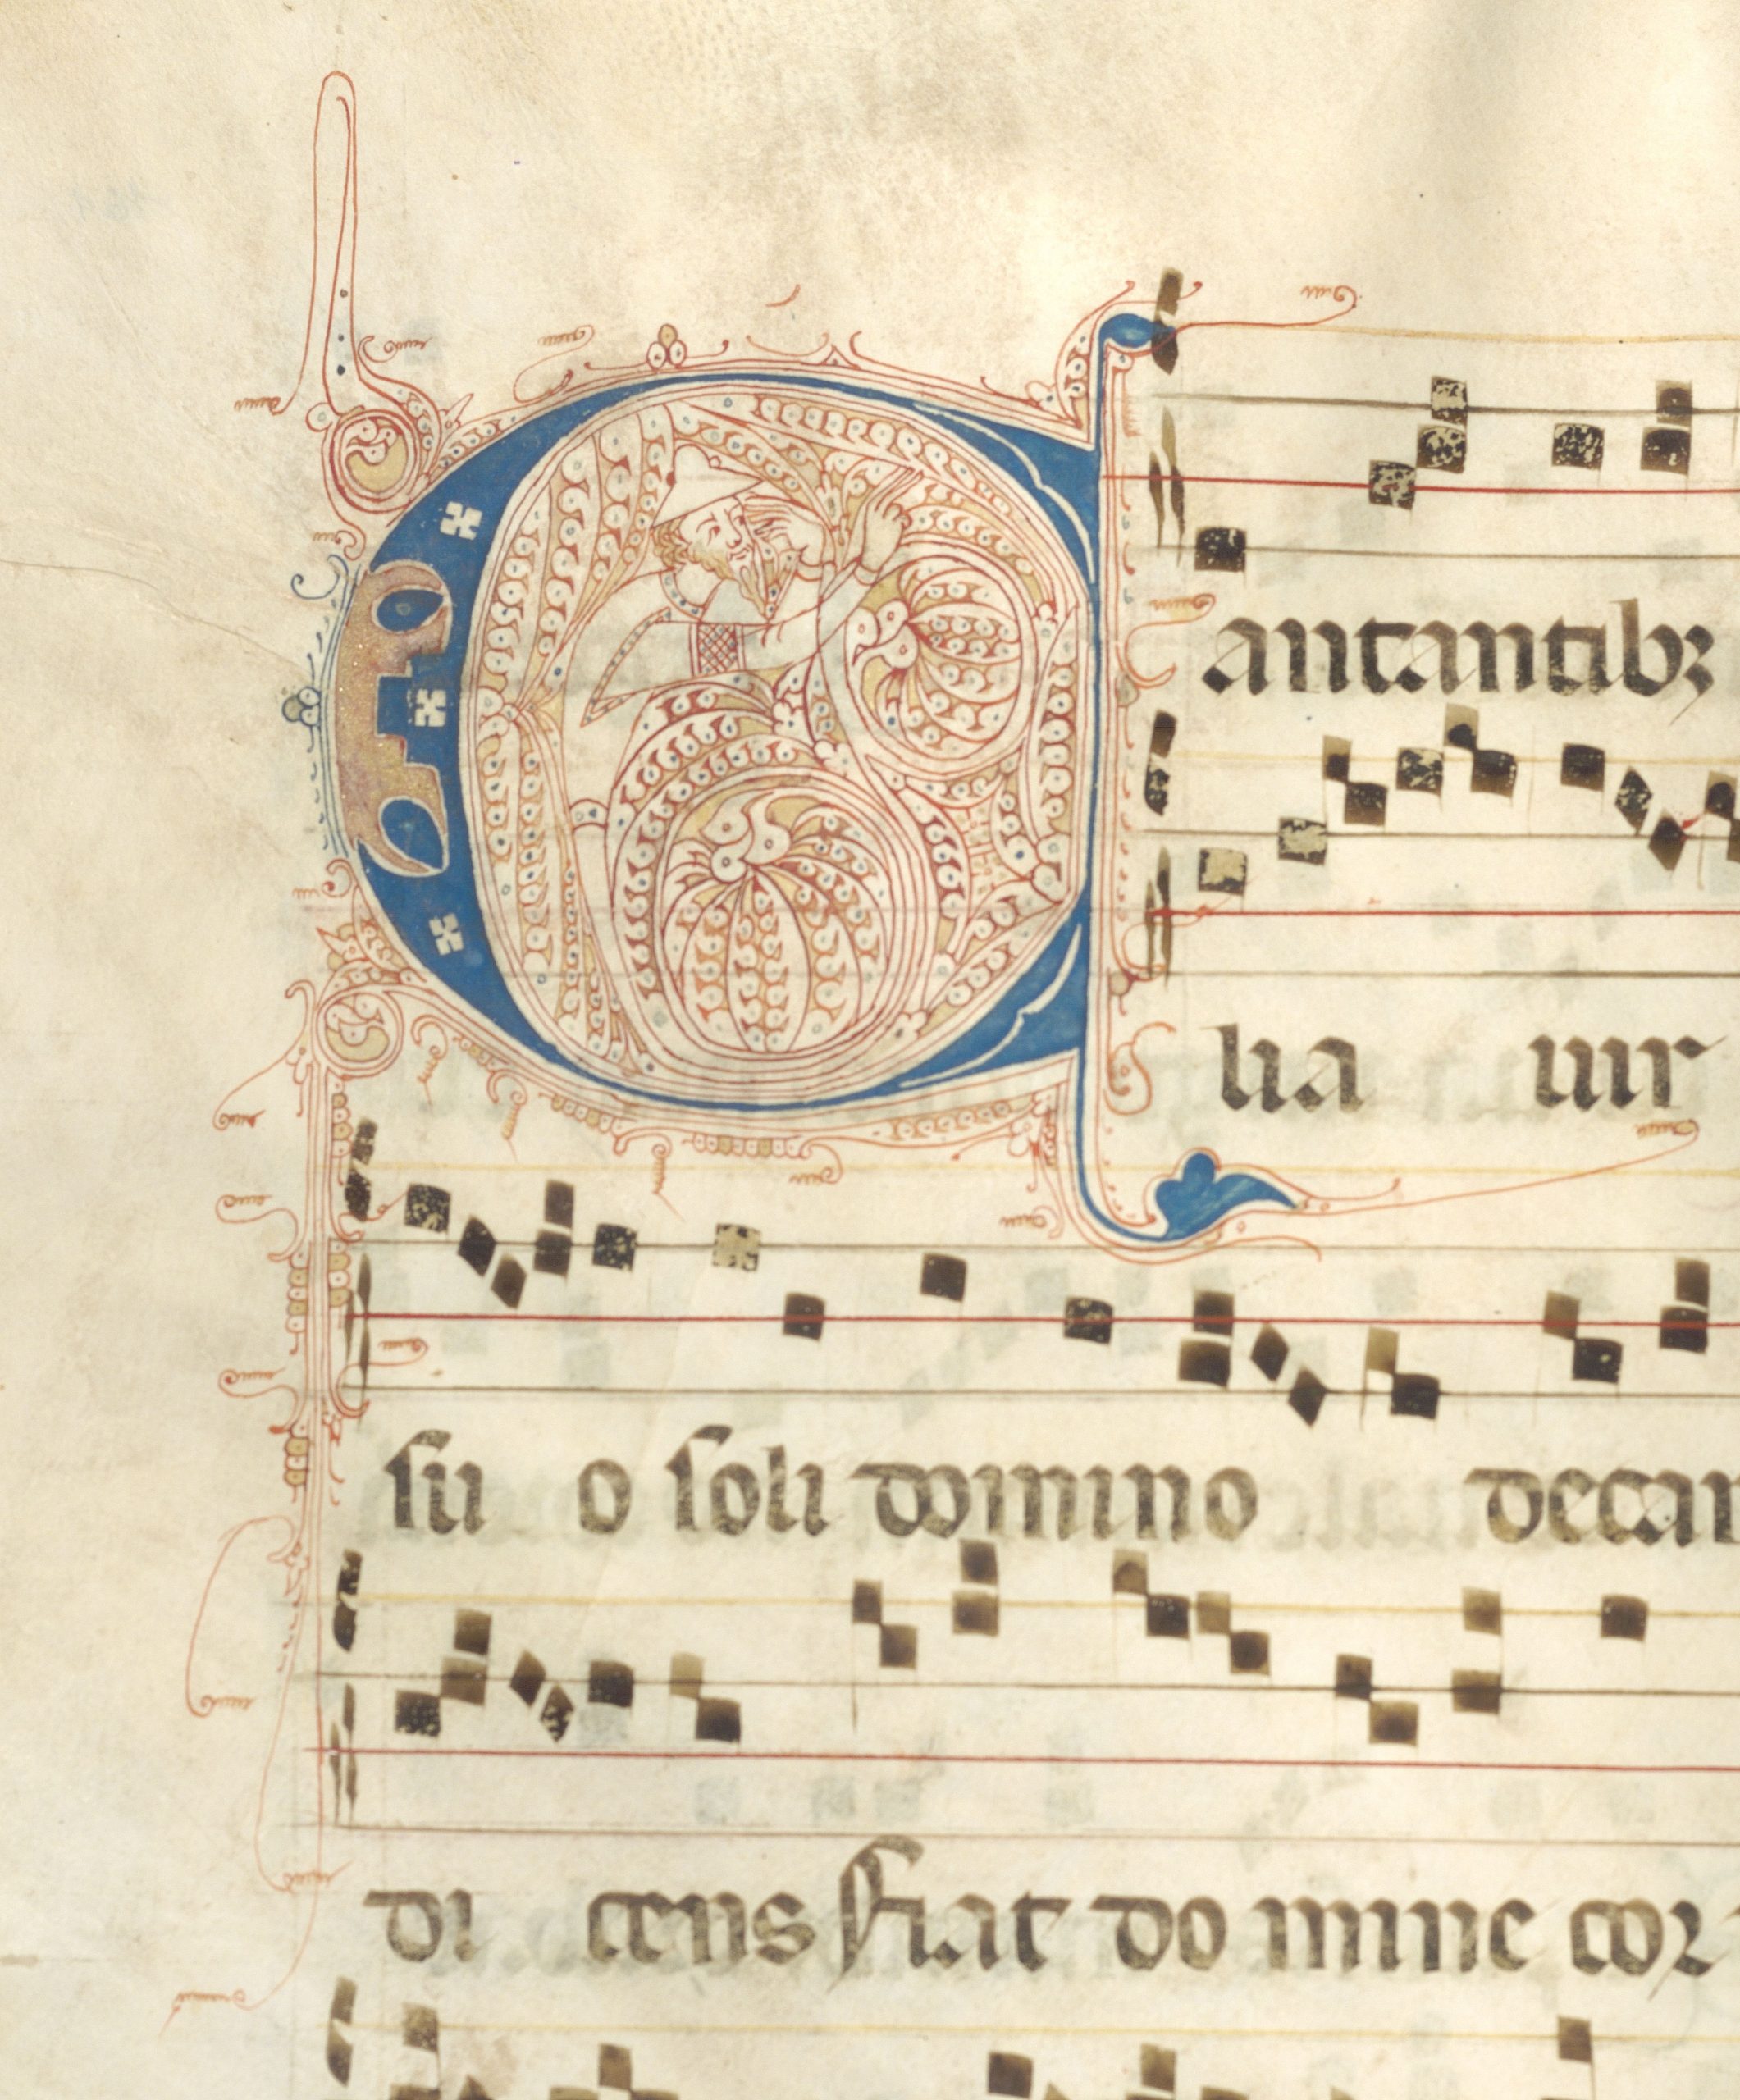 Cantantibꝫ
lia uir
su o soli domino decan
di cens fiat do mine cor